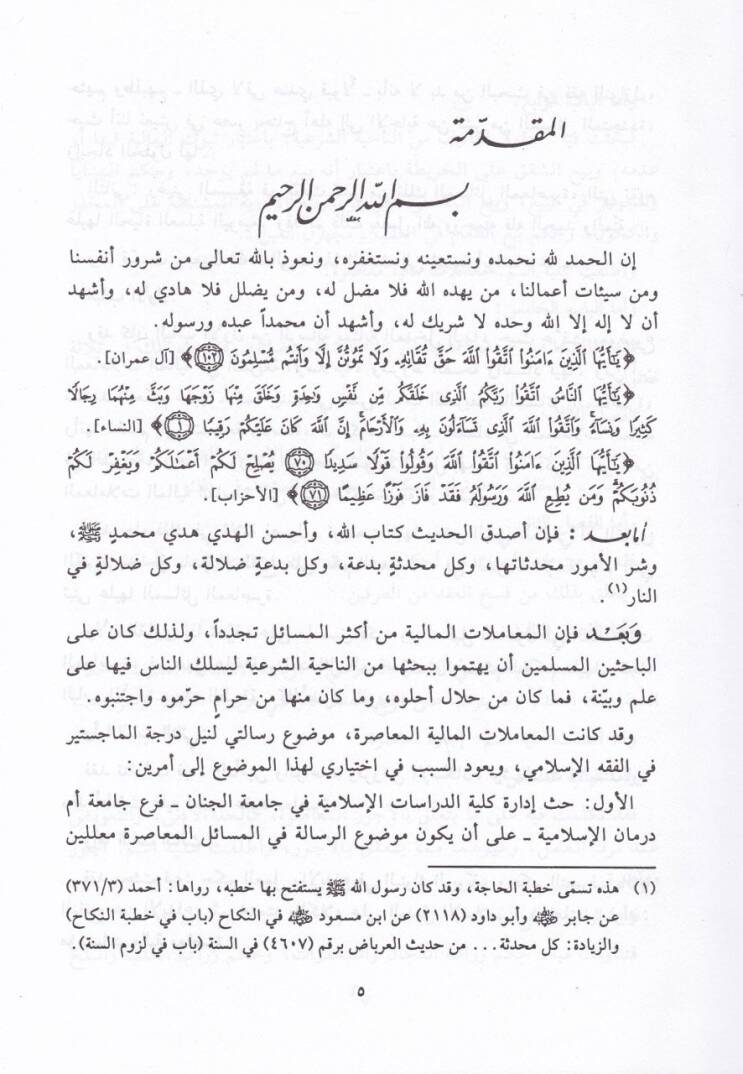 المقدّمة
بسم الله الرحمن الرحيم
إن الحمد لله نحمده ونستعينه ونستغفره، ونعوذ بالله تعالى من شرور أنفسنا
ومن سيئات أعمالنا، من يهده الله فلا مضل له، ومن يضلل فلا هادي له، وأشهد
أن لا إله إلا الله وحده لا شريك له، وأشهد أن محمداً عبده ورسوله.
﴿يَٰٓأَيُّهَا ٱلَّذِينَ ءَامَنُوا۟ ٱتَّقُوا۟ ٱللَّهَ حَقَّ تُقَاتِهِۦ وَلَا تَمُوتُنَّ إِلَّا وَأَنتُم مُّسْلِمُونَ ١٠٢﴾ [آل عمران].
﴿يَٰٓأَيُّهَا ٱلنَّاسُ ٱتَّقُوا۟ رَبَّكُمُ ٱلَّذِى خَلَقَكُم مِّن نَّفْسٍ وَٰحِدَةٍ وَخَلَقَ مِنْهَا زَوْجَهَا وَبَثَّ مِنْهُمَا رِجَالًا
كَثِيرًا وَنِسَآءً ۚ وَٱتَّقُوا۟ ٱللَّهَ ٱلَّذِى تَسَآءَلُونَ بِهِۦ وَٱلْأَرْحَامَ ۚ إِنَّ ٱللَّهَ كَانَ عَلَيْكُمْ رَقِيبًا ١﴾ [النساء].
﴿يَٰٓأَيُّهَا ٱلَّذِينَ ءَامَنُوا۟ ٱتَّقُوا۟ ٱللَّهَ وَقُولُوا۟ قَوْلًا سَدِيدًا ٧٠ يُصْلِحْ لَكُمْ أَعْمَٰلَكُمْ وَيَغْفِرْ لَكُمْ
ذُنُوبَكُمْ ۗ وَمَن يُطِعِ ٱللَّهَ وَرَسُولَهُۥ فَقَدْ فَازَ فَوْزًا عَظِيمًا ٧١﴾ [الأحزاب].
أما بعد: فإن أصدق الحديث كتاب الله، وأحسن الهدي هدي محمدٍ ﷺ،
وشر الأمور محدثاتها، وكل محدثةٍ بدعة، وكل بدعةٍ ضلالة، وكل ضلالةٍ في
النار(١).
وَبَعَد فإن المعاملات المالية من أكثر المسائل تجدداً، ولذلك كان على
الباحثين المسلمين أن يهتموا ببحثها من الناحية الشرعية ليسلك الناس فيها على
علم وبيّنة، فما كان من حلال أحلوه، وما كان منها من حرامٍ حرّموه واجتنبوه.
وقد كانت المعاملات المالية المعاصرة، موضوع رسالتي لنيل درجة الماجستير
في الفقه الإسلامي، ويعود السبب في اختياري لهذا الموضوع إلى أمرين:
الأول: حث إدارة كلية الدراسات الإسلامية في جامعة الجنان ـ فرع جامعة أم
درمان الإسلامية ـ على أن يكون موضوع الرسالة في المسائل المعاصرة معللين
(١) هذه تسمّى خطبة الحاجة، وقد كان رسول الله ﷺ يستفتح بها خطبه، رواها: أحمد (٣/٣٧١)
عن جابر رضي الله عنه وأبو داود (٢١١٨) عن ابن مسعود رضي الله عنه في النكاح (باب في خطبة النكاح)
والزيادة: كل محدثة... من حديث العرباض برقم (٤٦٠٧) في السنة (باب في لزوم السنة).
٥